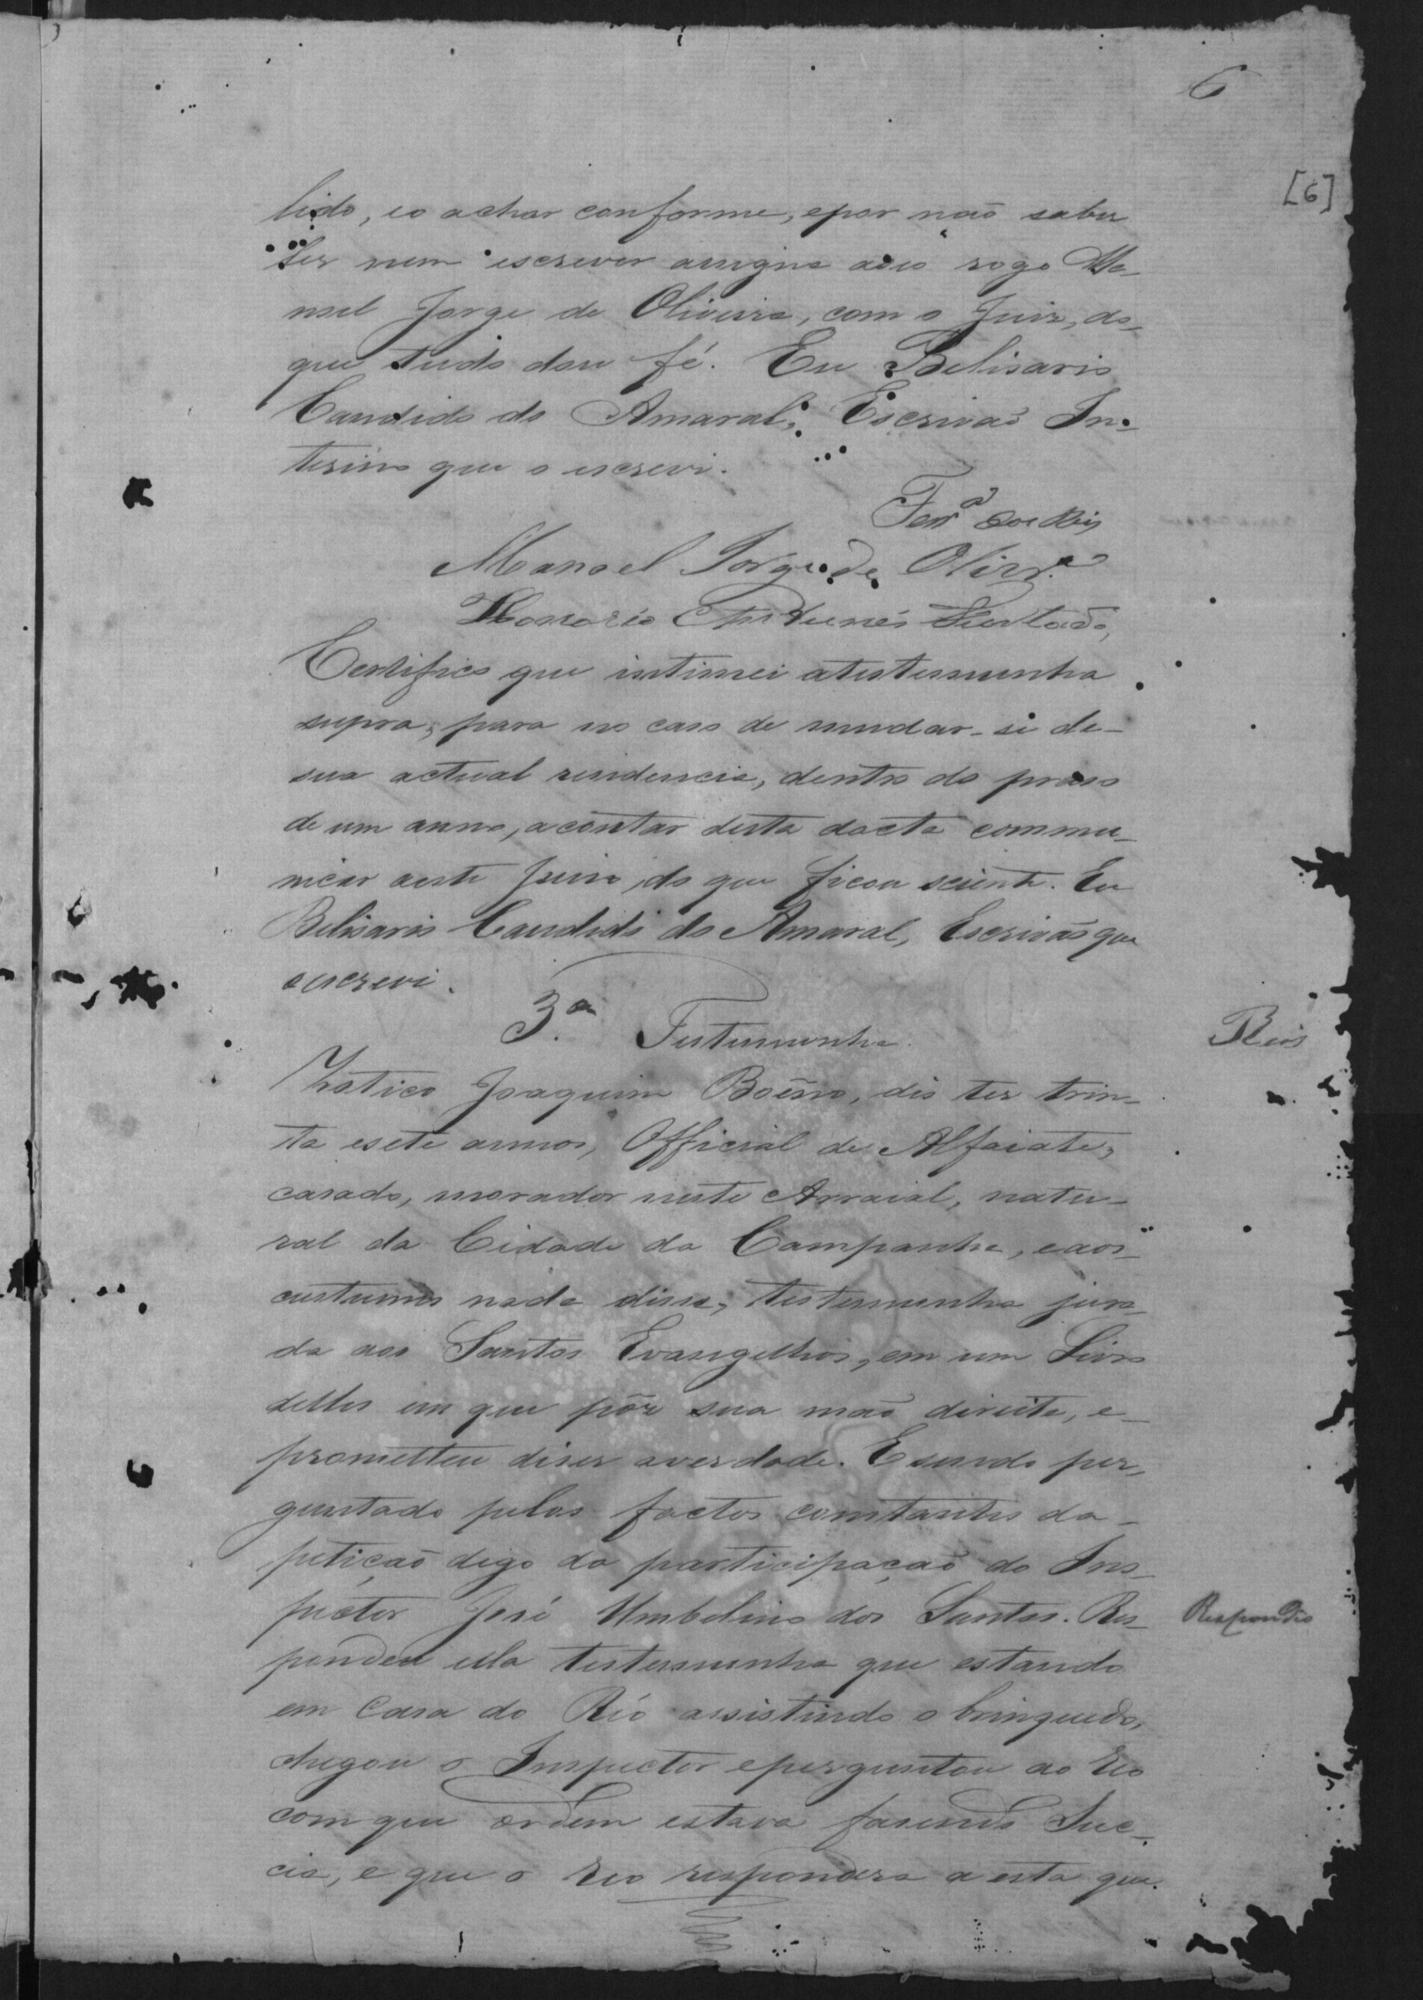 6
[6]
lido, eo achar conforme, epor não saber
ler nem escrever assigna aseo rogo Ma-
noel Jorge de Oliveira, com o Juiz, do-
que tudo dou fé. Eu Belisario
Candido do Amaral, Escrivão In-
terino que o escrevi.
Ferr.ª dos Reis
Manoel Jorge de Olivr.ª
Honorio Antunes Furtado,
Certifico que intimei atestemunha
supra, para no caso de mudar-si de-
sua actual residencia, dentro do praso
de um anno, acontar desta dacta commu-
nicar aeste Juiso, do que ficou sciente. Eu
Belisario Candido do Amaral, Escrivão que
o escrevi.
3.ª Testemunha.
Reis
Joaquim Boeno, dis ter trin-
ta esete annos, Official de Alfaiate,
casado, morador neste Arraial, natu-
ral da Cidade da Campanha, eaos
custumes nada disse, testemunha jura-
da aos Santos Evangelhos, em um Livro
delles em que pôz sua mão direita, e-
prometteu diser averdade. Esendo per-
guntado pelos factos constantes da-
petição digo da participação do Ins-
pector José Umbelino dos Santos. Res-
Respondeo
pondeu ella testemunha que estando
em Casa do Réo assistindo o brinquedo,
chegou o Inspector eperguntou ao Reo
com que ordem estava fasendo Suc-
cia, e que o Reo respondera a esta que